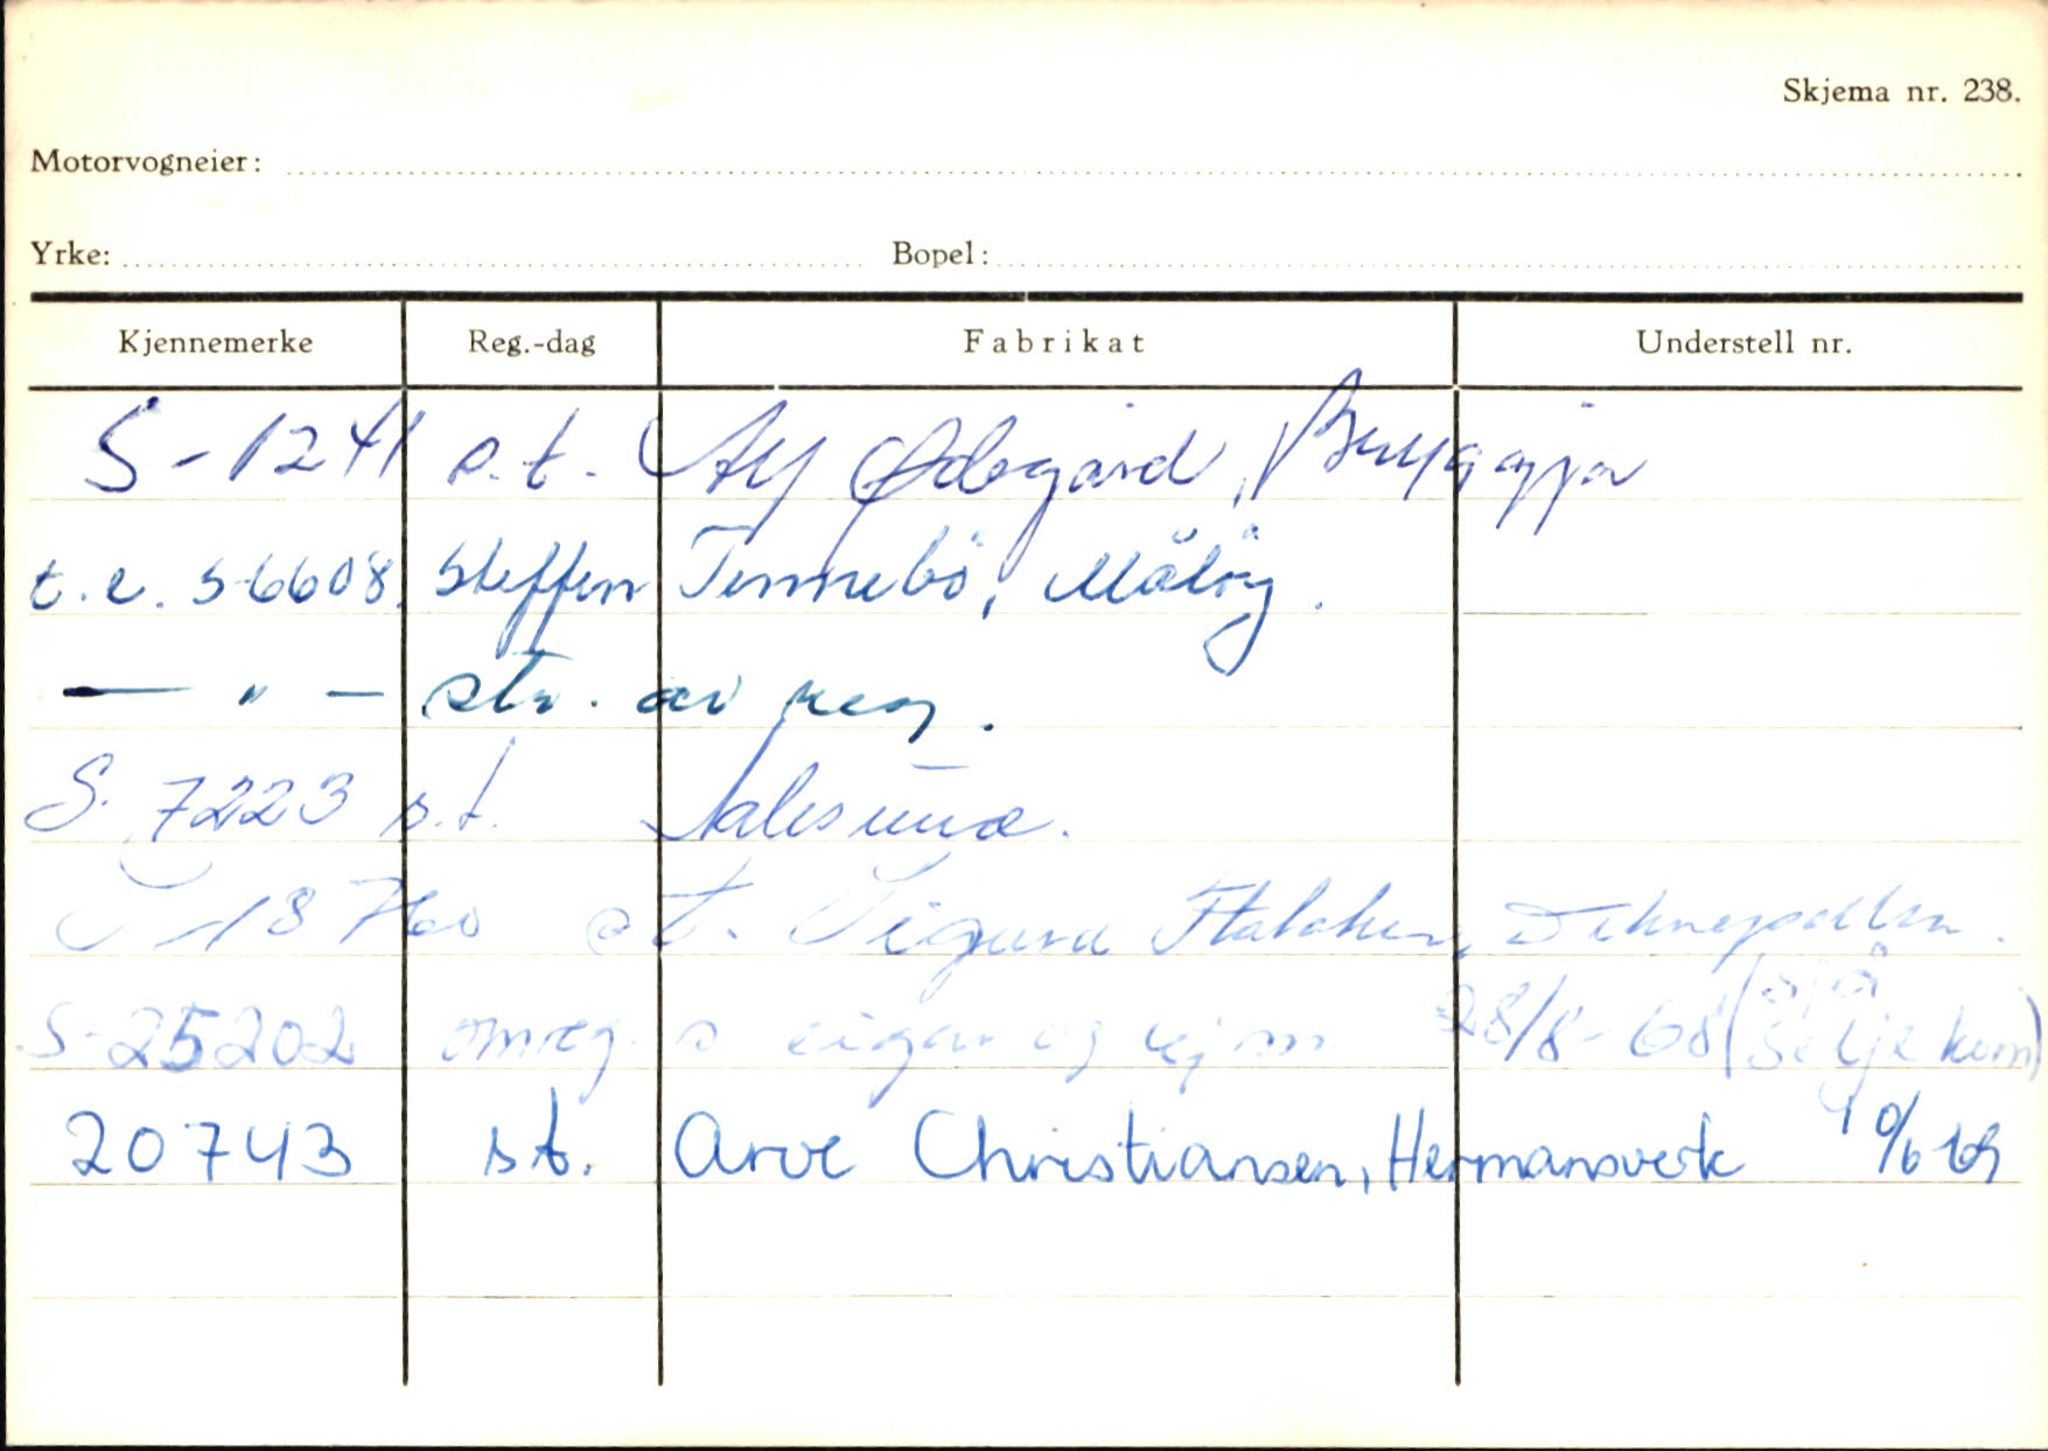 Skjema nr. 238.
Motorvogneier:
Yrke: Bopel:
Kjennemerke Reg.-dag Fabrikat Understell nr.
S-1241 s.t. Alf Ødegård, Bryggja
t.e. S-6608. Steffen Tennebö, Målöy.
— " — str. av reg.
S. 7223 s.t. Aalesund.
S-18760 s.t. Sigurd
S-25202 omreg. s eigar og kjm 28/8-68 (sjå Selje kom)
20743 st. Arve Christiansen, Hermansverk 10/6 69